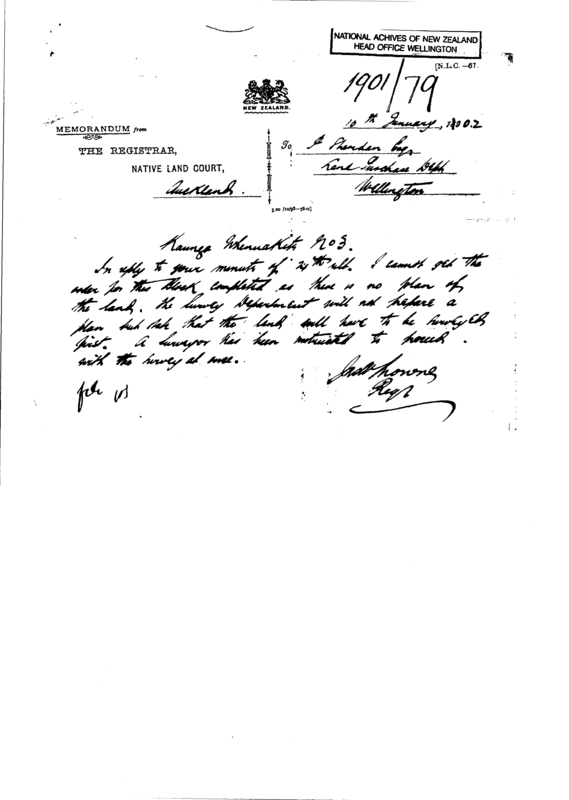 NATIONAL ACHIVES OF NEW ZEALAND
HEAD OFFICE WELLINGTON
[N.L.C.—67.
1901/79
NEW ZEALAND.
10th January, 1902
MEMORANDUM from
THE REGISTRAR,
NATIVE LAND COURT,
Auckland.
To P Sheridan Esq
Land Purchase Dept
Wellington
No 3.
In reply to your minute of 24th ult. I cannot get the
order for this Block completed as there is no plan of
the land. The Survey Department will not prepare a
plan but state that the land will have to be surveyed
first. A surveyor has been instructed to proceed
with the survey at once.
Regr
file